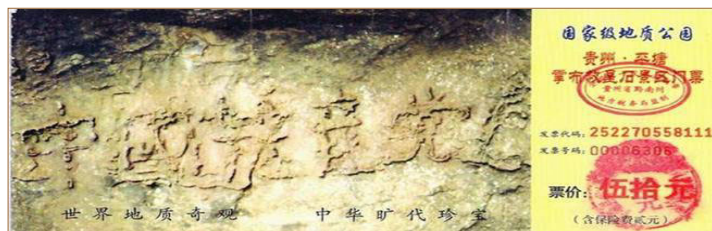 中國共产党
世界地质奇观 中华旷代珍宝
国家级地质公园
贵州·平塘
掌布救星石景区门票
贵州省黔南州
发票代码：252270558111
发票号码：00006306
票价：伍拾元
（含保险费贰元）